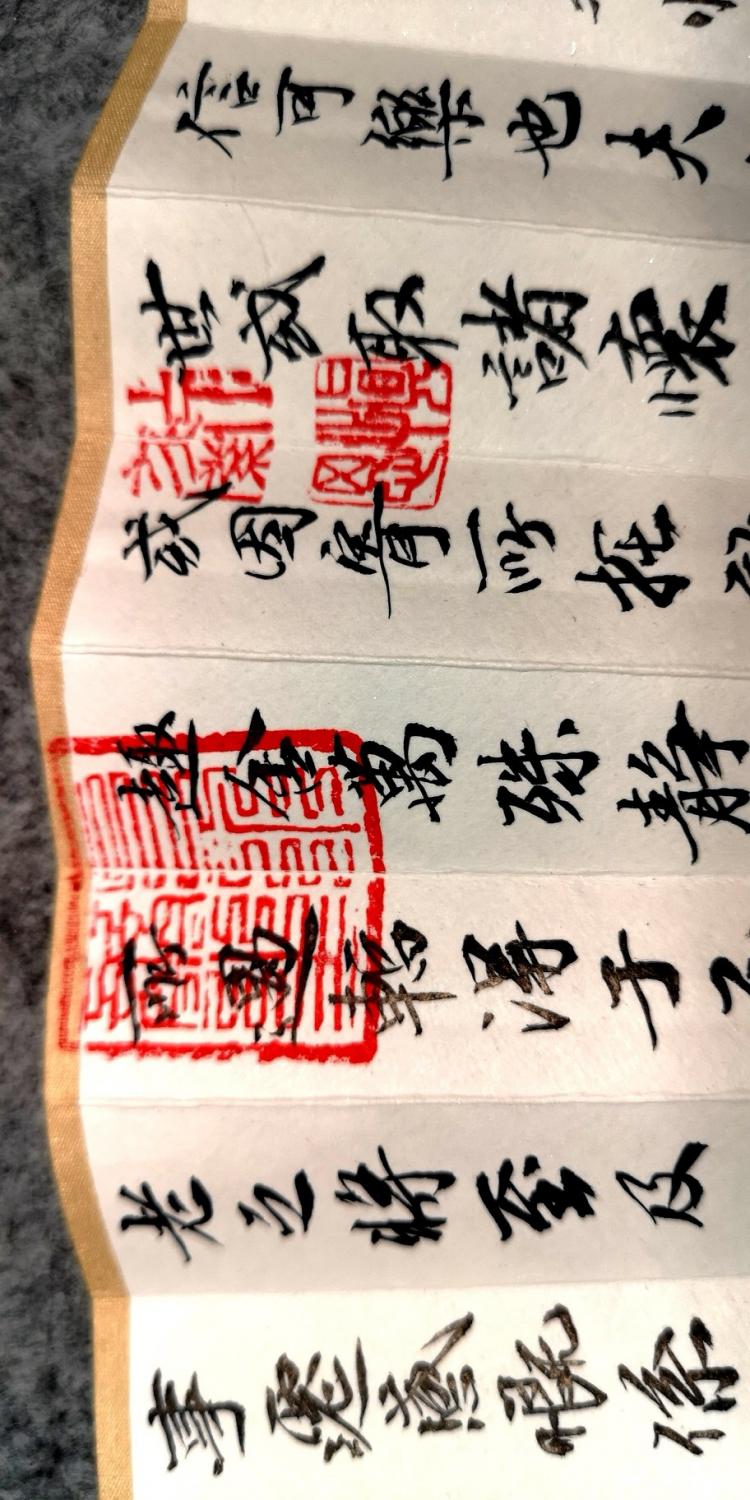 信可樂也夫
世或取諸懷
或因寄所托
趣舍萬殊靜
所遇暫得於
老之將至及
事遷感慨係